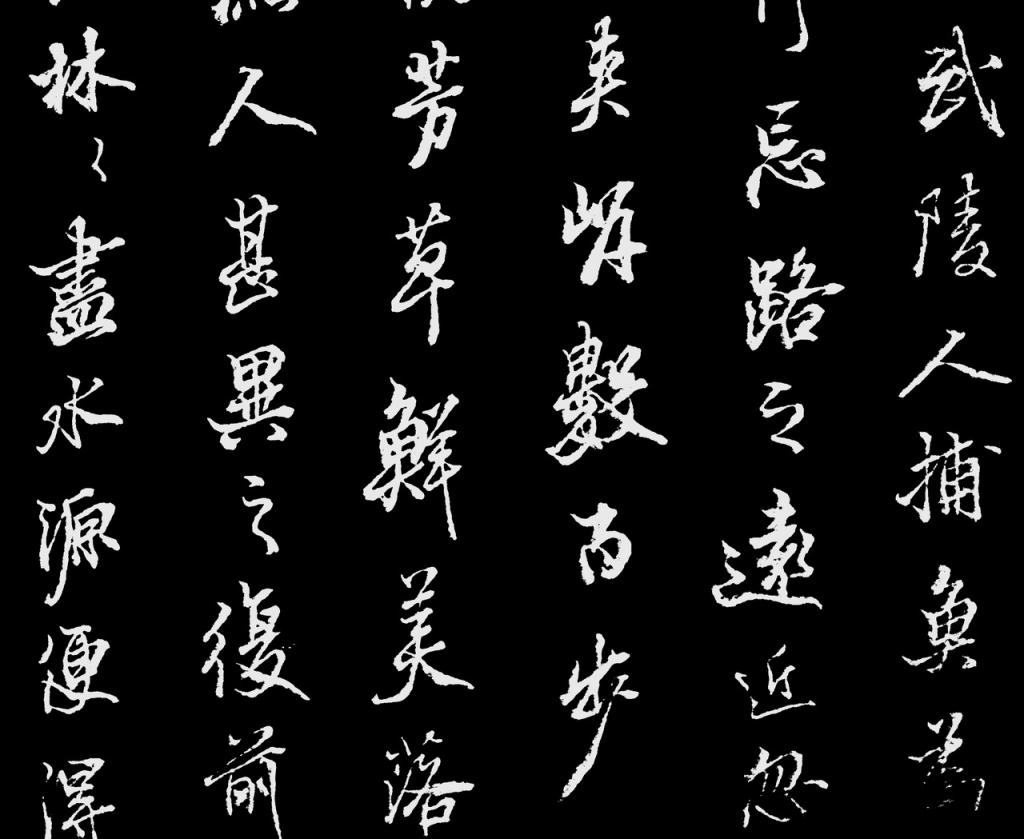 武陵人捕魚為
行忘路之遠近忽
夹岸數百步
芳草鮮美落
人甚異之復前
林〻盡水源便得